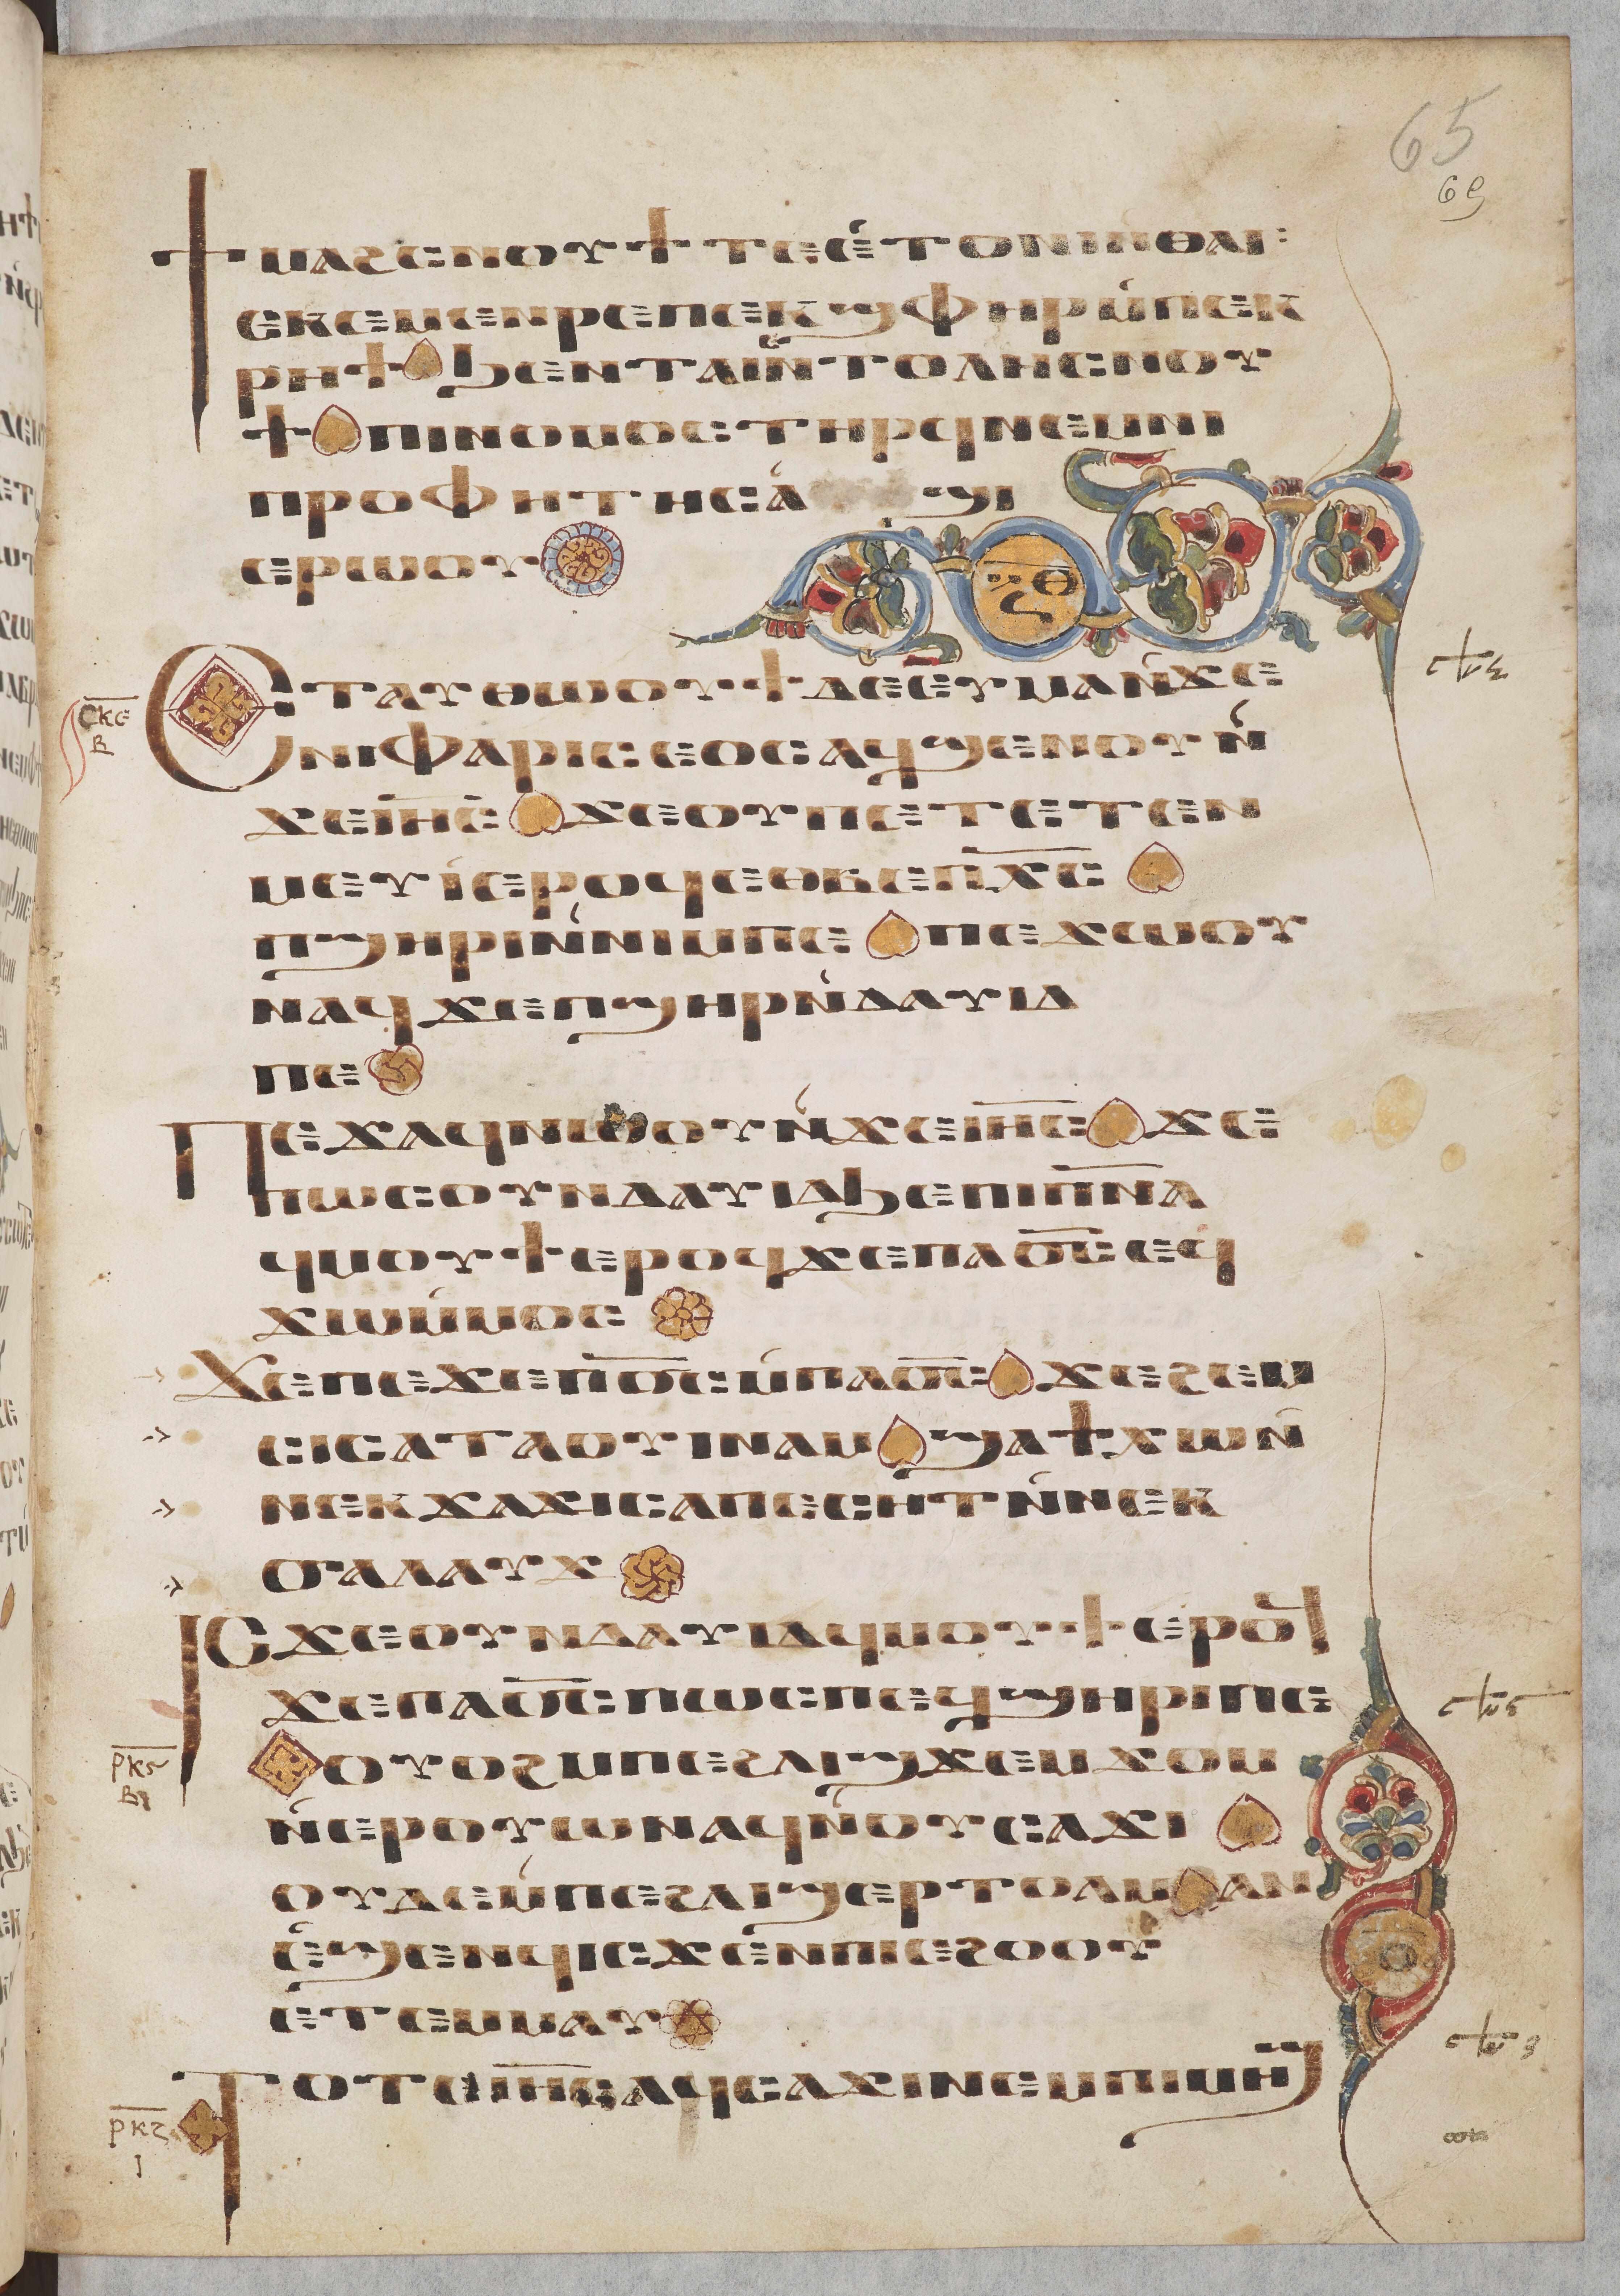 65
69
ϯⲙⲁϩⲥⲛⲟⲩϯ ⲧⲉ ⲉ̀ⲧⲟⲛⲓ ⲛ̀ⲑⲁⲓ:
ⲉⲕⲉⲙⲉⲛⲣⲉ ⲡⲉⲕϣⲫⲏⲣ ⲙ̀ⲡⲉⲕ
ⲣⲏϯ ϧⲉⲛ ⲧⲁⲓⲛ̀ⲧⲟⲗⲏ ⲥⲛⲟⲩ
ϯ ⲡⲓⲛⲟⲙⲟⲥ ⲧⲏⲣϥ ⲛⲉⲙ ⲛⲓ
ⲡⲣⲟⲫⲏⲧⲏⲥ ⲁ̀ ϣⲓ
ⲉⲣⲱⲟⲩ
ⲝⲑ
ⲥⲕⲉ
ⲃ
ⲉⲧⲁⲩⲑⲱⲟⲩϯ ⲇⲉ ⲉⲩⲙⲁ ⲛ̀ϫⲉ
ⲛⲓⲫⲁⲣⲓⲥⲉⲟⲥ ⲁϥϣⲉⲛⲟⲩ ⲛ̀
ϫⲉ ⲓⲏ̅ⲥ̅ ϫⲉ ⲟⲩ ⲡⲉⲧⲉⲧⲉⲛ
ⲙⲉⲩⲓ̀ ⲉⲣⲟϥ ⲉⲑⲃⲉ ⲡⲭ̅ⲥ̅
ⲡϣⲏⲣⲓ ⲛ̀ⲛⲓⲙ ⲡⲉ ⲡⲉϫⲱⲟⲩ
ⲛⲁϥ ϫⲉ ⲡϣⲏⲣ ⲛ̀ⲇⲁⲩⲓⲇ
ⲡⲉ
ⲡⲉϫⲁϥ ⲛⲱⲟⲩ ⲛ̀ϫⲉ ⲓⲏ̅ⲥ̅ ϫⲉ
ⲡⲱⲥ ⲟⲩⲛ ⲇⲁⲩⲓⲇ ϧⲉ ⲡⲓⲡ̅ⲛ̅ⲁ
ϥⲙⲟⲩϯ ⲉⲣⲟϥ ϫⲉ ⲡⲁϭ̅ⲥ̅ ⲉϥ
ϫⲱ ⲙ̀ⲙⲟⲥ
ϫⲉ ⲡⲉϫⲉ ⲡϭ̅ⲥ̅ ⲙ̀ⲡⲁϭ̅ⲥ̅ ϫⲉ ϩⲉⲙ
ⲥⲓ ⲥⲁⲧⲁⲟⲩⲓⲛⲁⲙ ϣⲁϯⲭⲱ ⲛ̀
ⲛⲉⲕϫⲁϫⲓ ⲥⲁⲡⲉⲥⲏⲧ ⲛ̀ⲛⲉⲕ
ϭⲁⲗⲁⲩϫ
ⲓⲥϫⲉ ⲟⲩⲛ ⲇⲁⲩⲓⲇ ϥⲙⲟⲩϯ ⲉⲣⲟϥ
ϫⲉ ⲡⲁϭ̅ⲥ̅ ⲡⲱⲥ ⲡⲉϥϣⲏⲣⲓ ⲡⲉ
ⲣⲕⲋ
ⲃ
ⲟⲩⲟϩ ⲙⲡⲉϩⲗⲓ ϣϫⲉⲙϫⲟⲙ
ⲛ̀ⲉⲣⲟⲩⲱ ⲛⲁϥ ⲛ̀ⲟⲩⲥⲁϫⲓ
ⲟⲩⲇⲉ ⲙ̀ⲡⲉϩⲗⲓ ϣⲉⲣⲧⲟⲗⲙⲁⲛ
ⲉ̀ϣⲉⲛϥ ⲓⲥϫⲉ̀ⲛ ⲡⲓⲉϩⲟⲟⲩ
ⲉⲧⲉⲙⲙⲁⲩ
ⲟ
ⲣⲕⲍ
ⲓ
ⲧⲟⲧⲉ ⲓⲏ̅ⲥ̅ ⲁϥⲥⲁϫⲓ ⲛⲉⲙ ⲡⲓⲙⲏϣ